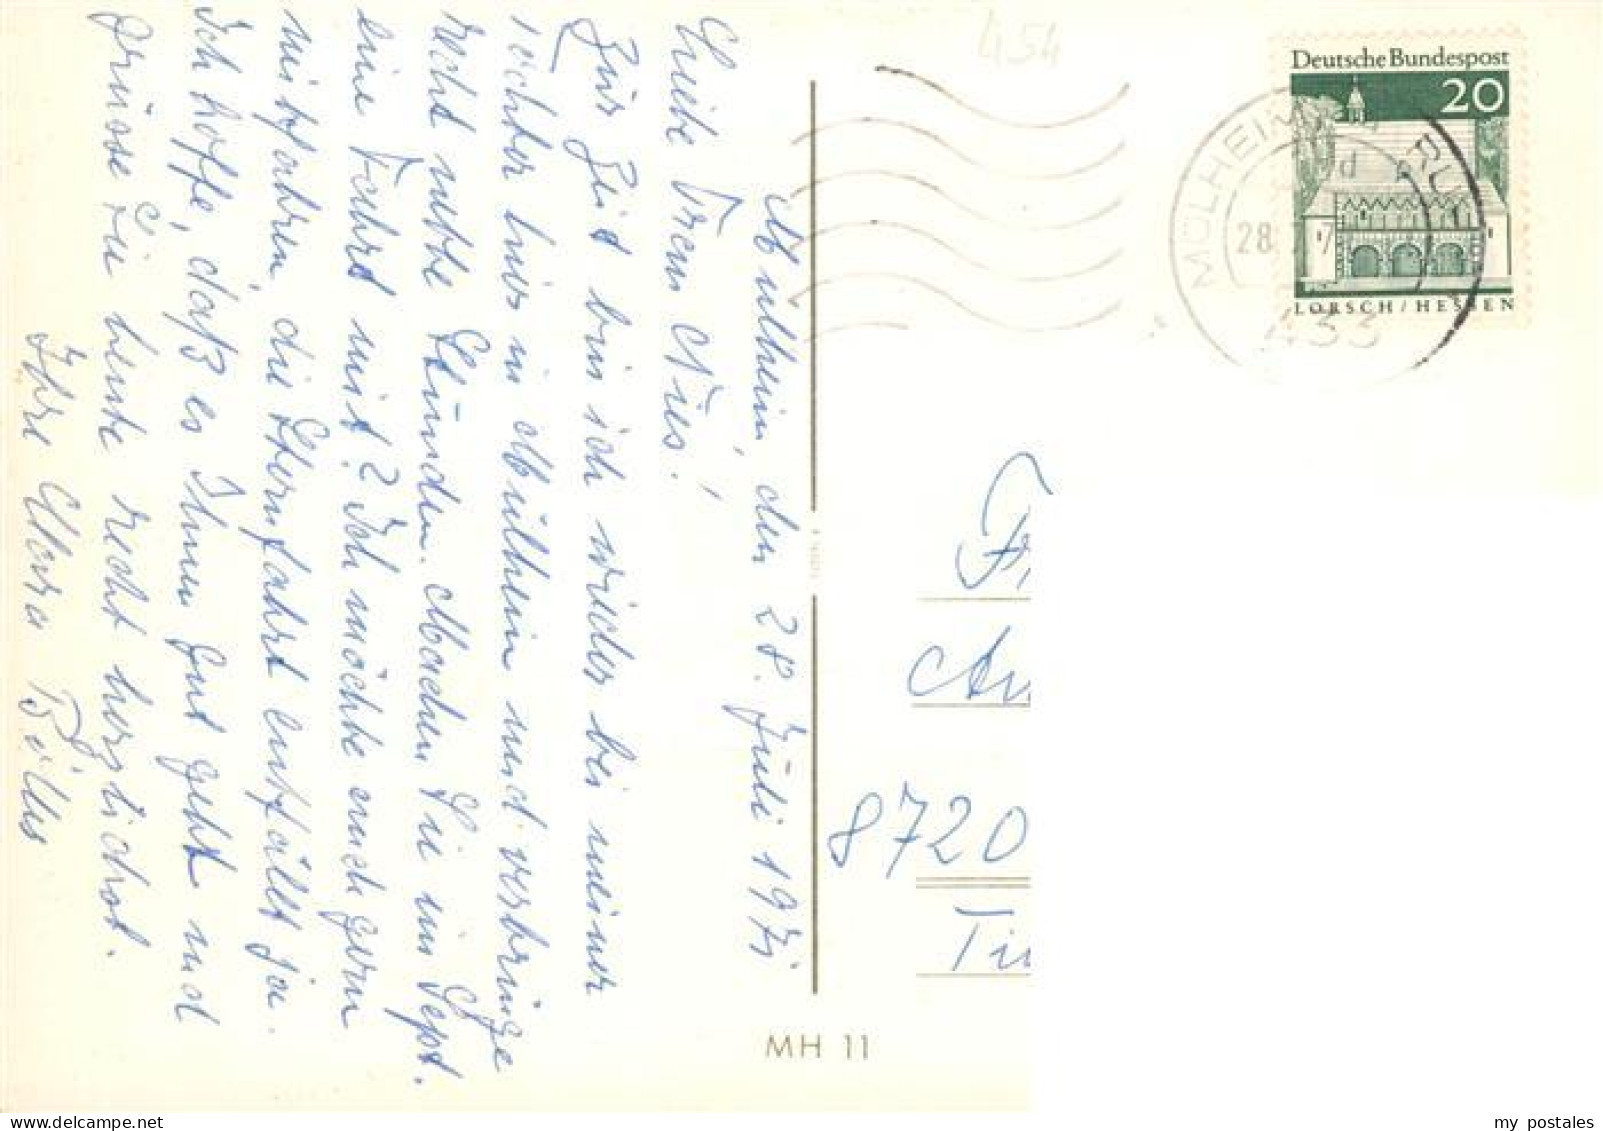 Mülheim, den 28. Juli 1971
Liebe Frau Nies!
Zur Zeit bin ich wieder bei meiner
Tochter hier in Mülheim und verbringe
recht nette Stunden. Machen Sie im Sept.
eine Fahrt mit? Ich möchte auch gern
mitfahren, die Sternfahrt entfällt ja.
Ich hoffe, daß es Ihnen gut geht und
grüsse Sie heute recht herzlichst.
Ihre Clara
454
Deutsche Bundespost
20
LORSCH/HESSEN
MÜLHEIM RUHR
28. 7
d
433
8720
MH 11
my postales